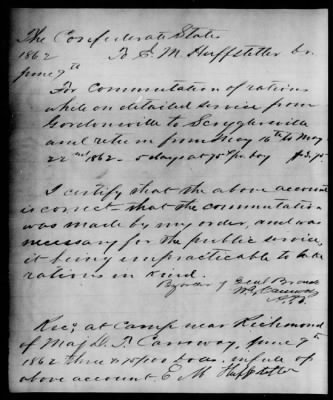 The Confederate States
1862 To E. M. Huffstetler Dr.
June 7th
For commutation of rations
while on detailed service from
Gordonsville to
and return from May 16th to May
22nd 1862 - 5 days at 75cts pr day $3.75
I certify that the above account
is correct - that the commutation
was made by my order, and was
necessary for the public service,
it being impracticable to take
rations in kind.
By order of Genl
Recd at Camp near Richmond
of Maj D. T. Carraway, June 7th
1862 three & 75/100 Dolls. in full of
above account. E M Huffstetler